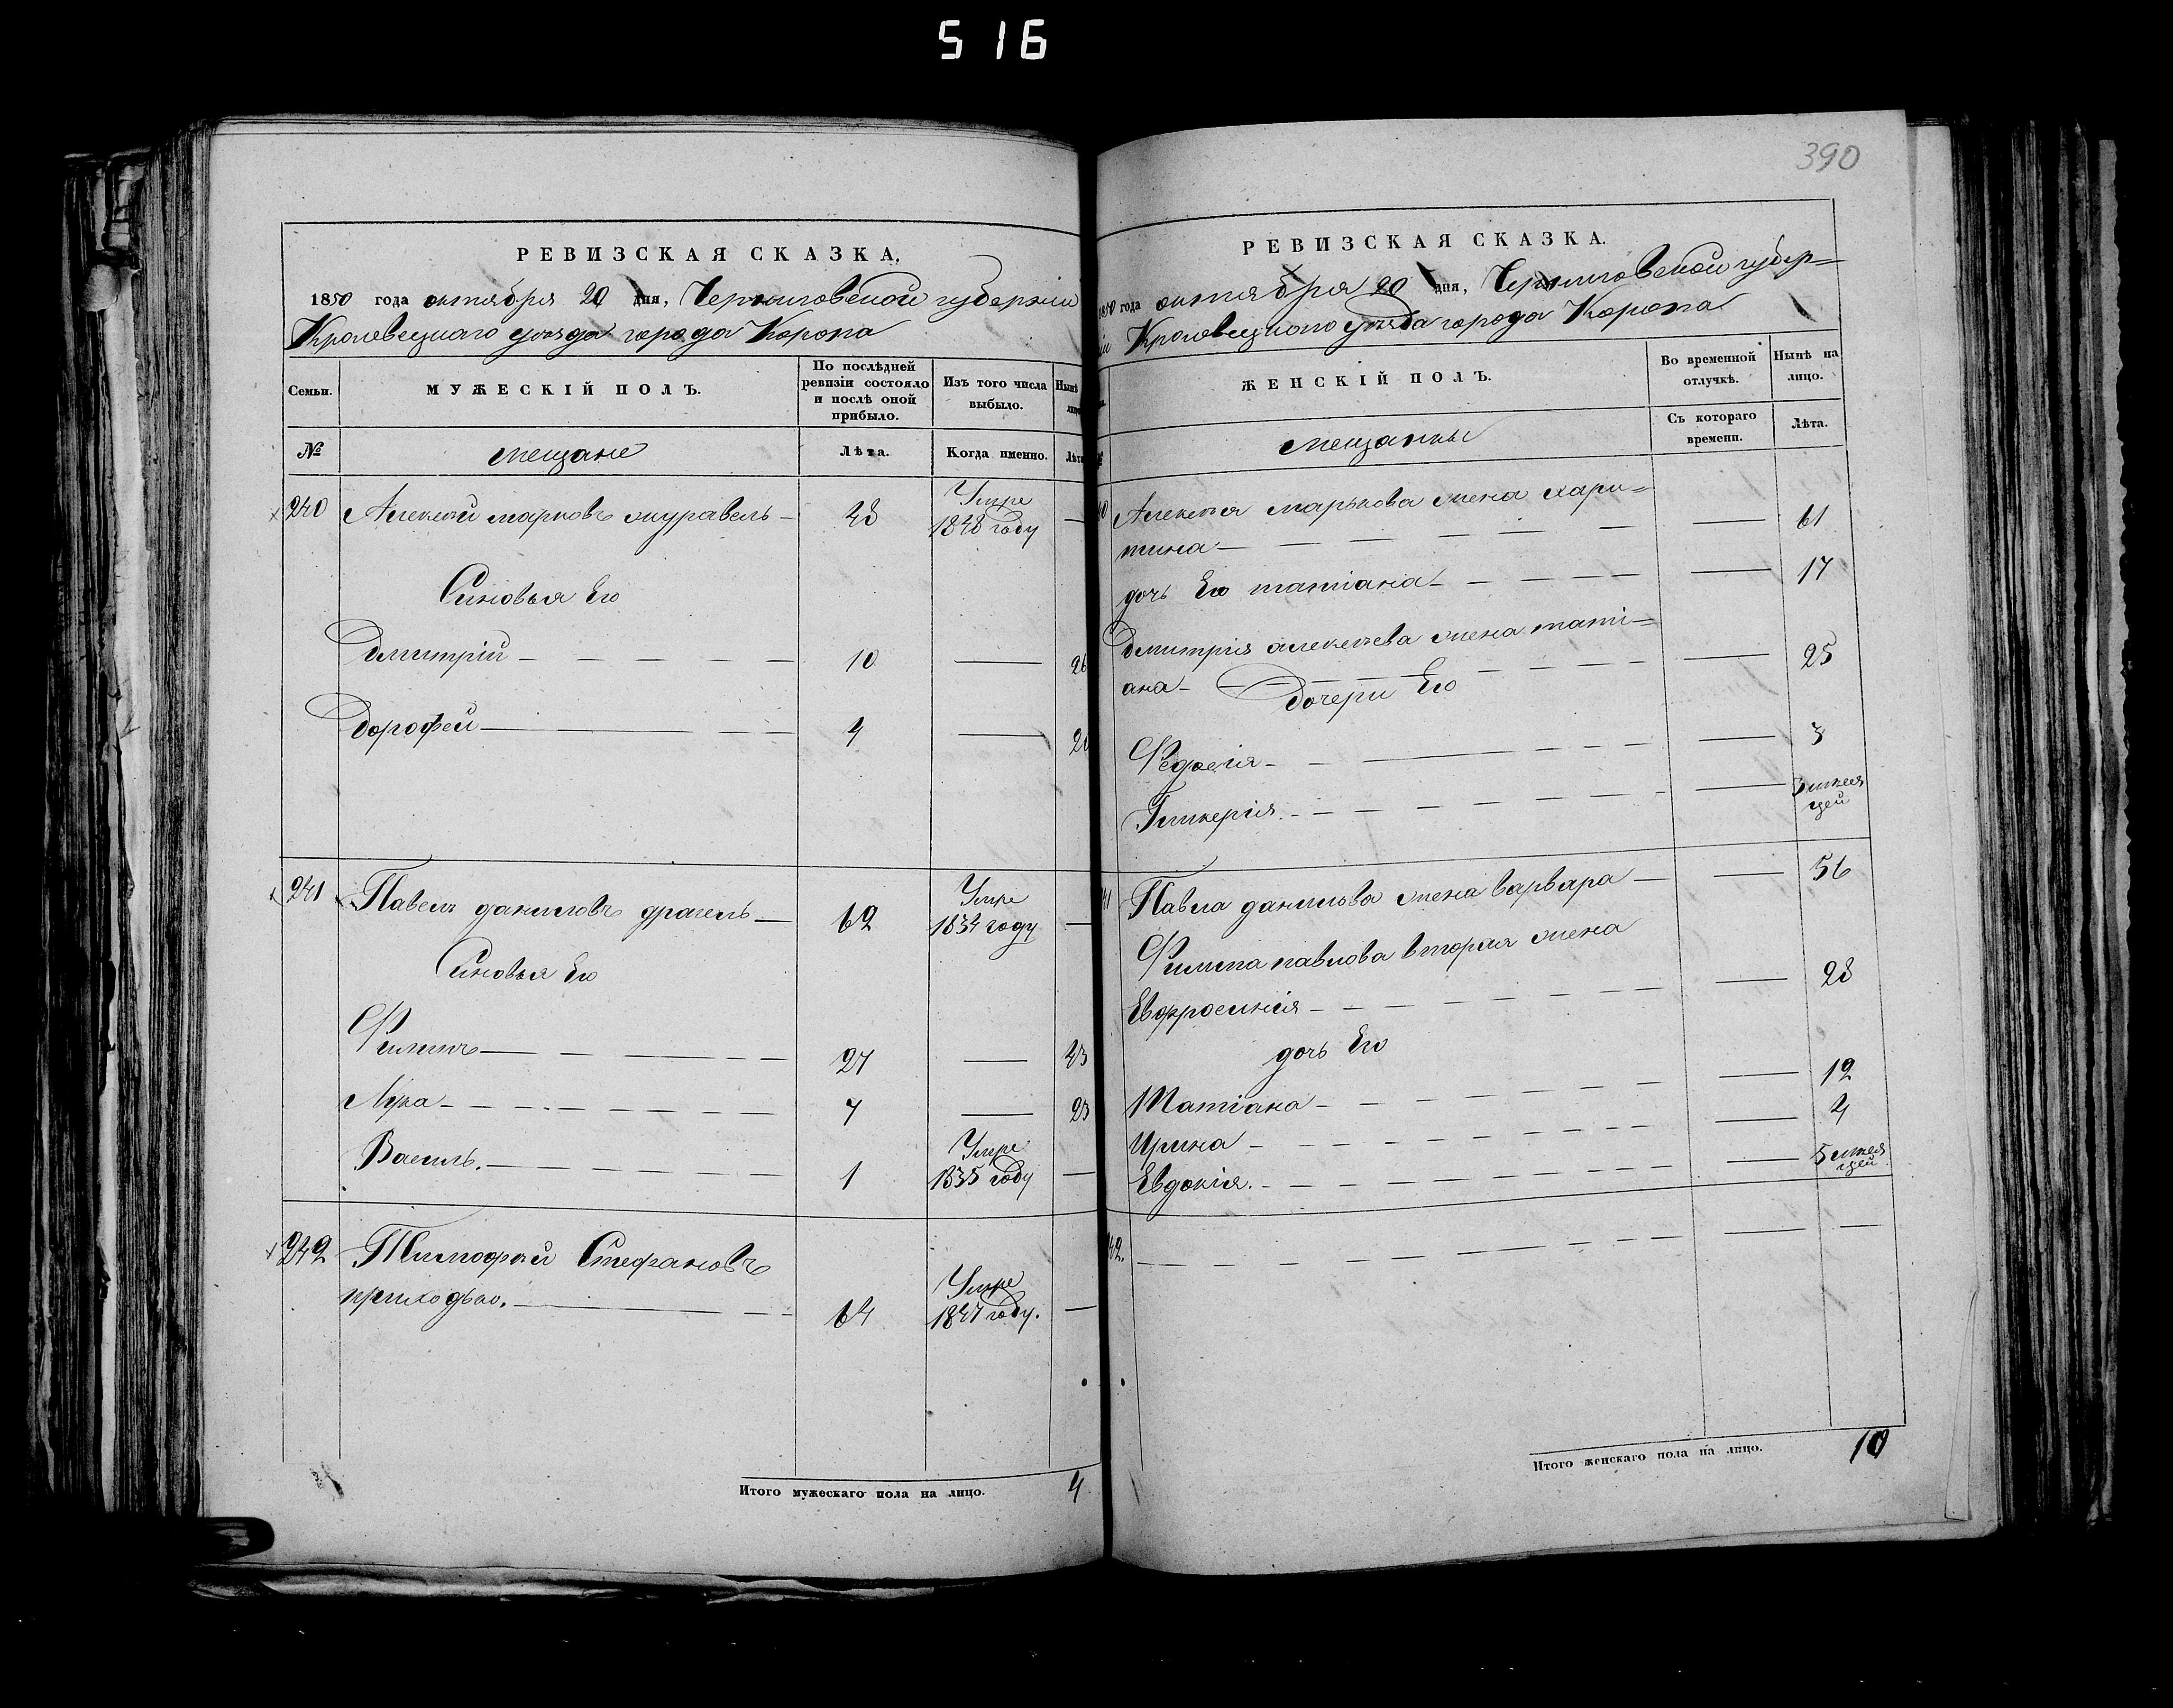 516
390
РЕВИЗСКАЯ СКАЗКА,
1850 года октября 20 дня, Черниговской губерніи
Кролевецкаго уѣзда города Коропа
Семьи.
МУЖЕСКІЙ ПОЛЪ.
По послѣдней ревизіи состояло и послѣ оной прибыло.
Изъ того числа выбыло.
Нынѣ
№
мещане
Лѣта.
Когда именно.
Лѣта
240 Алексѣй марковъ журавель — 43 Умре 1848 году —
Синовья Его
Дмитрій — — — — — 10 — 26
Дорофей — — — — 4 — 20
241 Павелъ даниловъ драгель — 62 Умре 1834 году —
Синовья Ею
Филипъ — — — — — 27 — 43
Лука — — — — — 7 — 23
Василь. — — — — — 1 Умре 1835 году —
242 Тимофѣй Стефановъ
приходько. — — — 64 Умре 1847 году. —
Итого мужескаго пола на лицо. 4
РЕВИЗСКАЯ СКАЗКА.
1850 года октября 20 дня, Черниговской губер=
ніи Кролевецкаго уѣзда города Коропа
ЖЕНСКІЙ ПОЛЪ.
Во временной отлучкѣ.
Нынѣ на лицо.
мещанкы
Съ котораго времени.
Лѣта.
Алексѣя марькова жена хари=
тина — — — — — — — 61
дочь Его татіана — — — — — 17
Дмитрія алексѣева жена таті=
ана — — — — — — — 25
Дочери Его
Федосія — — — — — — 3
Гликерія. — — — — — — 3 мѣся
цей
41 Павла данилова жена варвара — — 56
Филипа павлова вторая жена
Евфросинія — — — — — — 28
дочь Его
Татіана — — — — — — 12
Ирина — — — — — — 4
Евдокія. — — — — — — 5 мѣся
цей
42. — — — — — — — —
Итого женскаго пола на лицо. 10